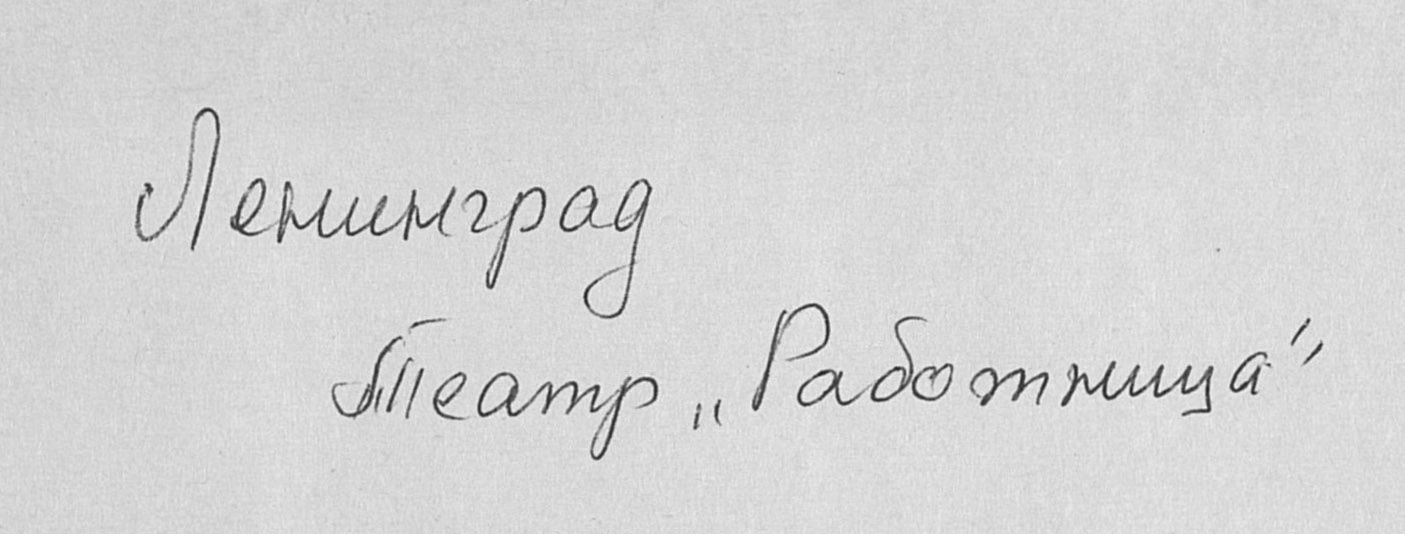 Ленинград
Театр „Работница"